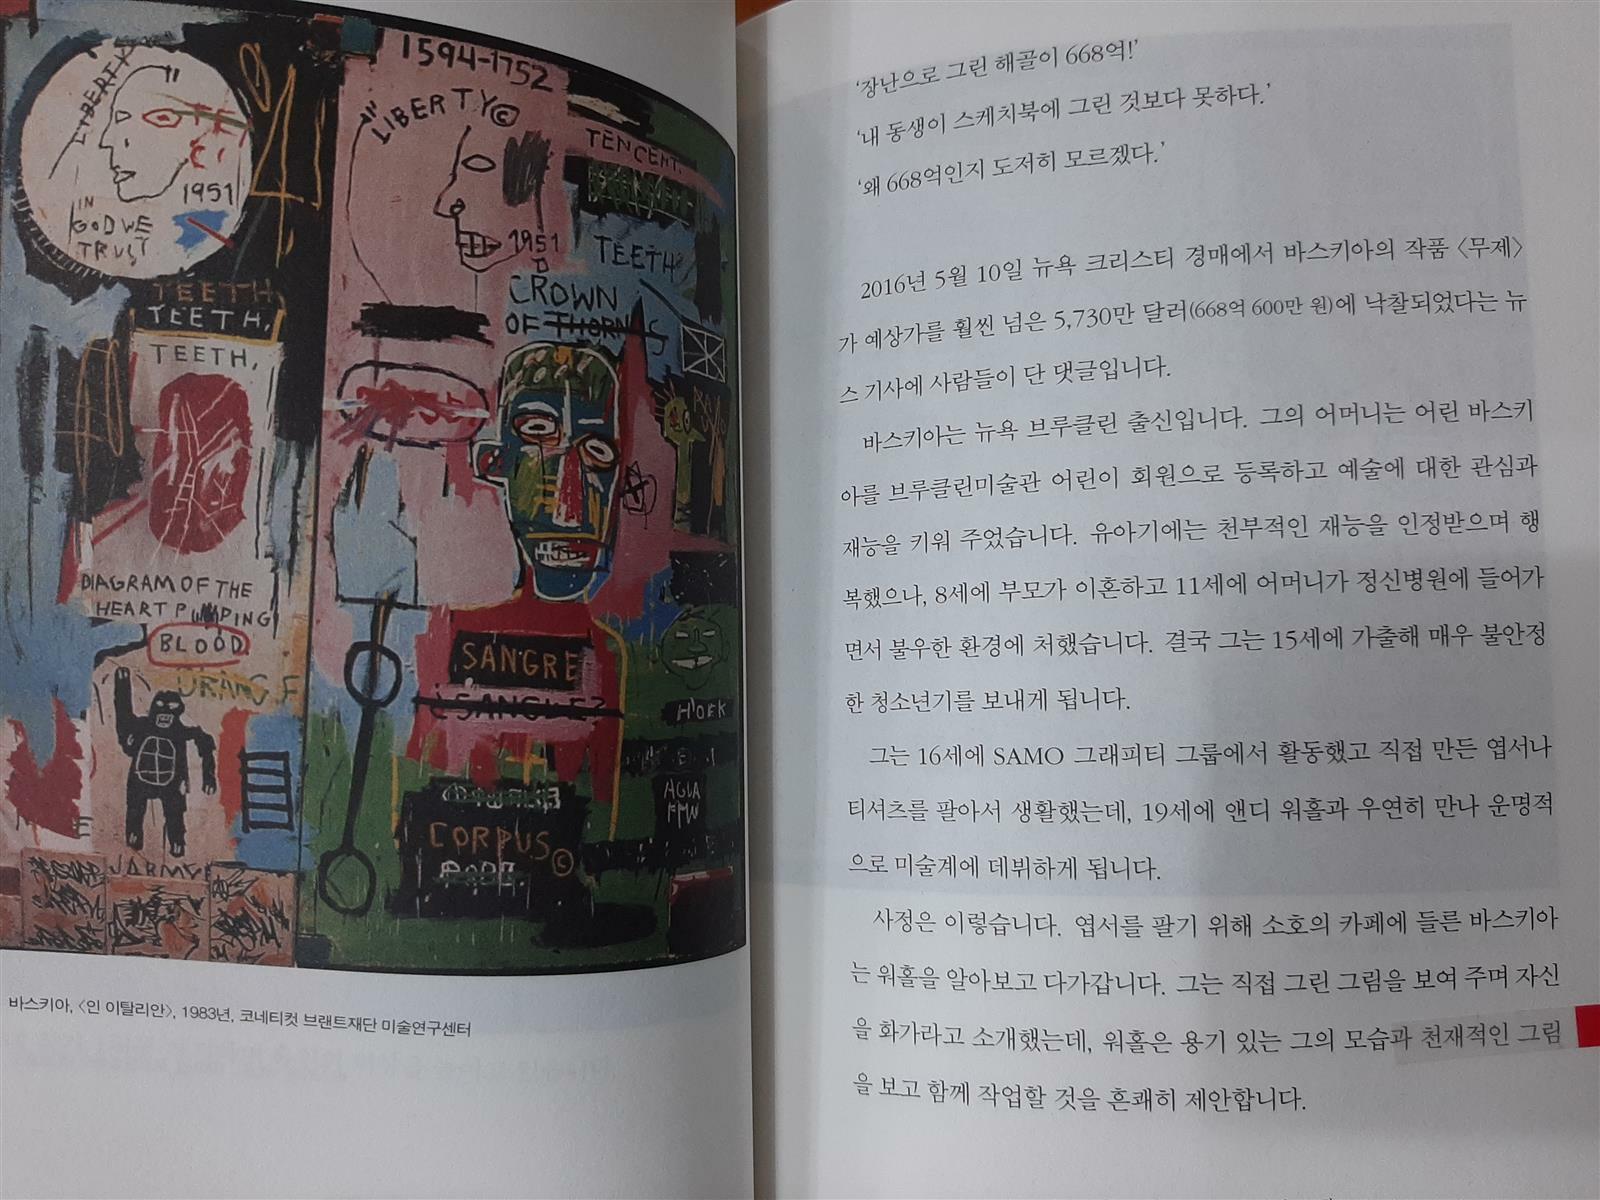 LIBERTY
1951
IN
GOD WE
TRUST
TEETH
TEETH,
TEETH,
DIAGRAM OF THE
HEART PUMPING
BLOOD
JARMY
1594-1752
"LIBERTY©
TENCENT.
1951
TEETH
CROWN
OF THORNS
SANGRE
¿SANGLE?
HOEK
AGUA
CORPUS©
바스키아, 〈인 이탈리안〉, 1983년, 코네티컷 브랜트재단 미술연구센터
‘장난으로 그린 해골이 668억!’
‘내 동생이 스케치북에 그린 것보다 못하다.’
‘왜 668억인지 도저히 모르겠다.’
2016년 5월 10일 뉴욕 크리스티 경매에서 바스키아의 작품 〈무제〉
가 예상가를 훨씬 넘은 5,730만 달러(668억 600만 원)에 낙찰되었다는 뉴
스 기사에 사람들이 단 댓글입니다.
바스키아는 뉴욕 브루클린 출신입니다. 그의 어머니는 어린 바스키
아를 브루클린미술관 어린이 회원으로 등록하고 예술에 대한 관심과
재능을 키워 주었습니다. 유아기에는 천부적인 재능을 인정받으며 행
복했으나, 8세에 부모가 이혼하고 11세에 어머니가 정신병원에 들어가
면서 불우한 환경에 처했습니다. 결국 그는 15세에 가출해 매우 불안정
한 청소년기를 보내게 됩니다.
그는 16세에 SAMO 그래피티 그룹에서 활동했고 직접 만든 엽서나
티셔츠를 팔아서 생활했는데, 19세에 앤디 워홀과 우연히 만나 운명적
으로 미술계에 데뷔하게 됩니다.
사정은 이렇습니다. 엽서를 팔기 위해 소호의 카페에 들른 바스키아
는 워홀을 알아보고 다가갑니다. 그는 직접 그린 그림을 보여 주며 자신
을 화가라고 소개했는데, 워홀은 용기 있는 그의 모습과 천재적인 그림
을 보고 함께 작업할 것을 흔쾌히 제안합니다.